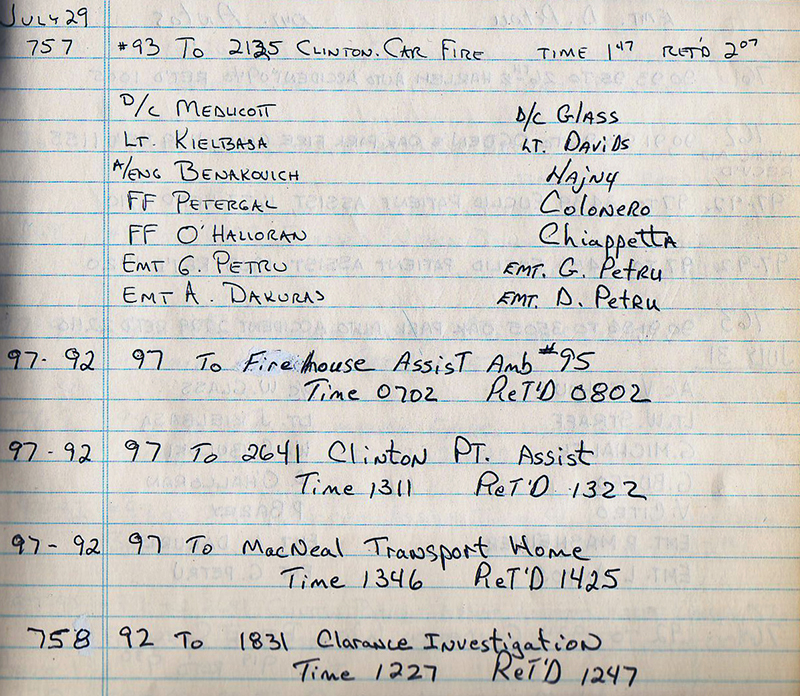 July 29
757 #93 To 2135 Clinton. Car Fire Time 1⁴⁷ Ret'd 2⁰⁷
D/C Medlicott D/C Glass
Lt. Kielbasa Lt. Davids
A/Eng Benakovich Hajny
FF Petergal Colonero
FF O'Halloran Chiappetta
Emt G. Petru Emt. G. Petru
Emt A. Dakuras Emt. D. Petru
97-92 97 To Firehouse Assist Amb #95
Time 0702 Ret'd 0802
97-92 97 To 2641 Clinton Pt. Assist
Time 1311 Ret'd 1322
97-92 97 To MacNeal Transport Home
Time 1346 Ret'd 1425
758 92 To 1831 Clarance Investigation
Time 1227 Ret'd 1247